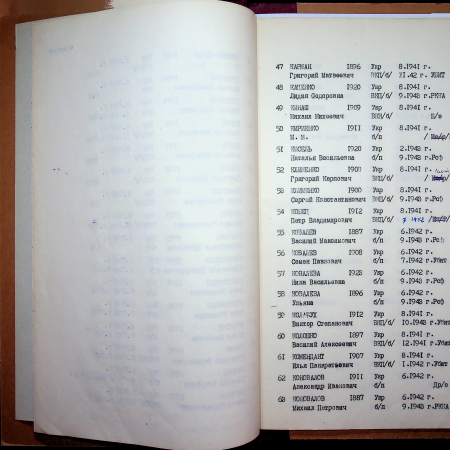 47 КАРМАН 1896 Укр 8.1941 г.
Григорий Матвеевич ВКП/б/ 11.42 г. Убит
48 1920 Укр 8.1941 г.
Лидия Федоровна ВКП/б/ 9.1943 г.РККА
49 КИЯШ 1909 Укр 8.1941 г.
Михаил Михеевич ВКП/б/
50 КИРИЕНКО 1911 Укр 8.1941 г.
М. М. ВКП/б/
51 КИСЕЛЬ 1920 Укр 2.1942 г.
Наталья Васильевна б/п 9.1943 г.Рсф
52 КЛИМЕНКО 1903 Укр 8.1941 г.
Григорий Карпович ВКП/б/
53 КЛИМЕНКО 1900 Укр 8.1941 г.
Сергей Константинович б/п 9.1943 г.Рсф
54 1912 Укр 8.1941 г.
Петр Владимирович ВКП/б/ 1942
55 КОВАЛЕВ 1887 Укр 6.1942 г.
Василий Максимович б/п 9.1943 г.Рсф
56 КОВАЛЕВ 1908 Укр 6.1942 г.
Семен Иванович б/п 7.1942 г.Убит
57 КОВАЛЕВА 1928 Укр 6.1942 г.
Нина Васильевна б/п 9.1943 г.Рсф
58 КОВАЛЕВА 1896 Укр 6.1942 г.
Ульяна б/п 9.1943 г.Рсф
59 1912 Укр 8.1941 г.
Виктор Степанович ВКП/б/ 10.1943 г.Убит
60 КОЛОШКО 1897 Укр 8.1941 г.
Василий Алексеевич ВКП/б/ 12.1941 г.Убит
61 КОМЕНДАНТ 1907 Укр 8.1941 г.
Илья Панкратьевич ВКП/б/ 1.1942 г.Убит
62 КОНОВАЛОВ 1911 Укр 6.1942 г.
Александр Иванович б/п
63 КОНОВАЛОВ 1887 Укр 6.1942 г.
Михаил Петрович б/п 9.1943 г.РККА